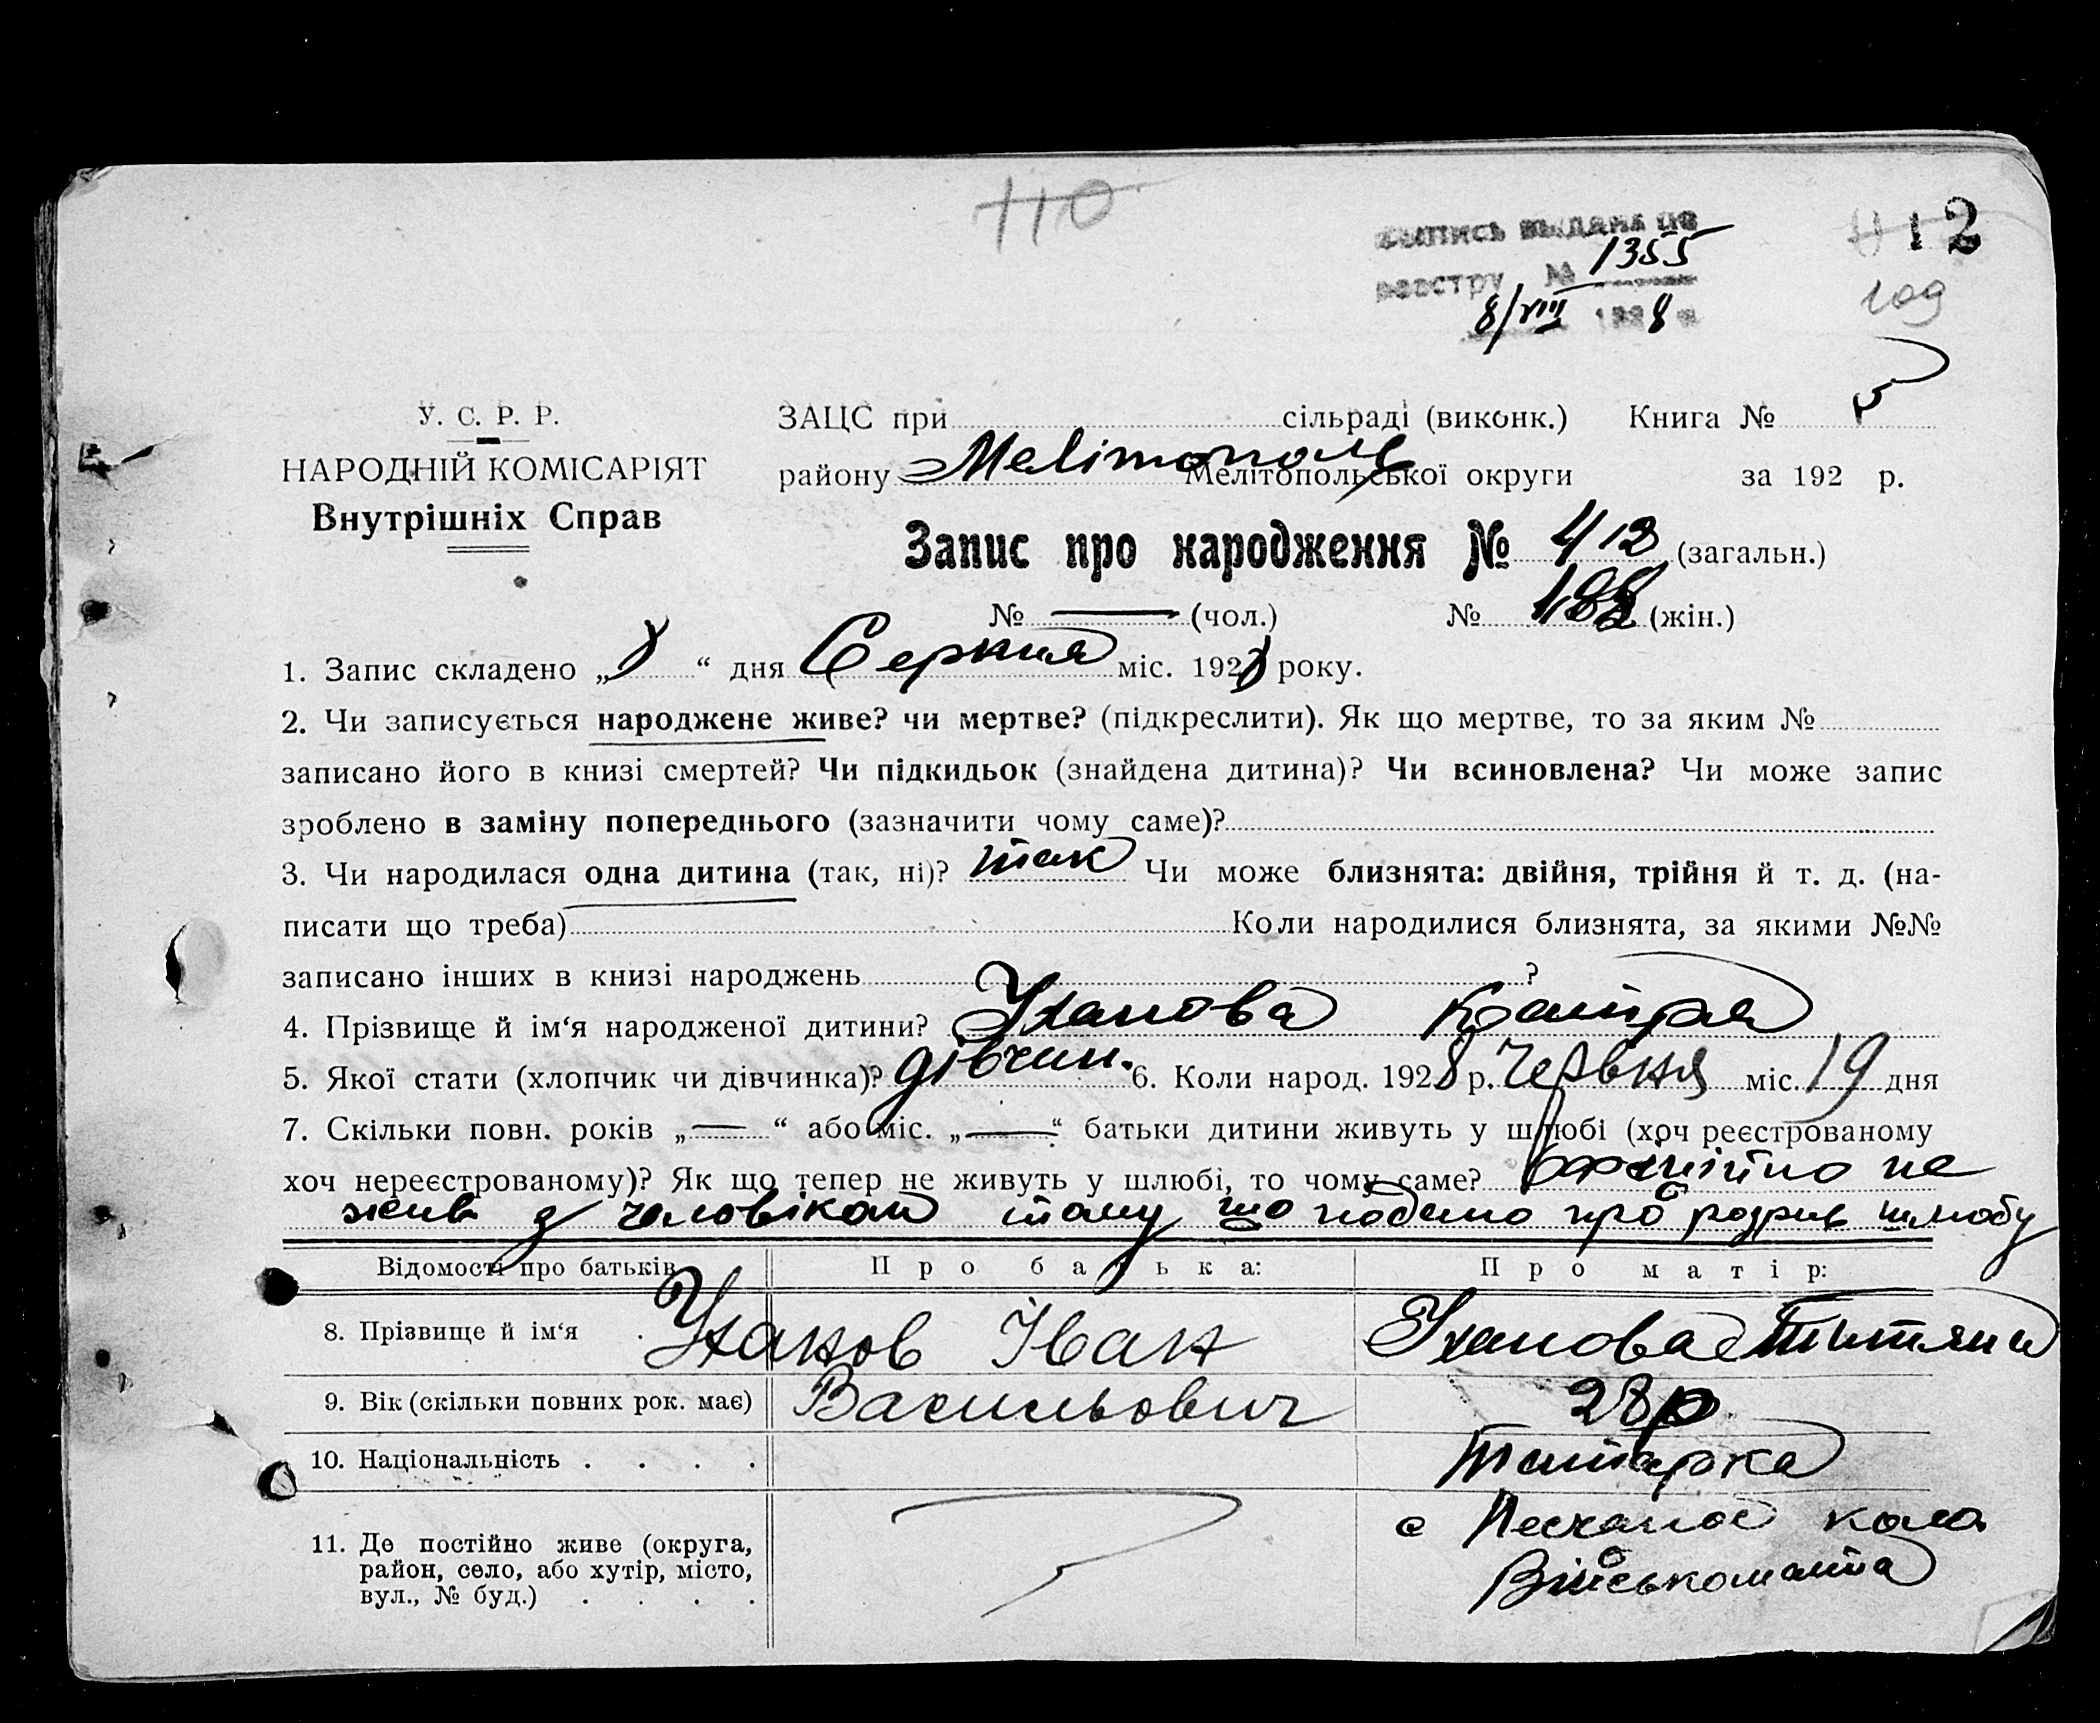 110
выпись выдана по
реестру № 1355
8/VIII 1938 г.
112
109
У. С. Р. Р.
НАРОДНІЙ КОМІСАРІЯТ
Внутрішніх Справ
ЗАЦС при сільраді (виконк.) Книга № 5
району Мелітополь Мелітопольської округи за 192 р.
Запис про народження № 412 (загальн.)
№ — (чол.) № 188 (жін.)
1. Запис складено „8“ дня Серпня міс. 1928 року.
2. Чи записується народжене живе? чи мертве? (підкреслити). Як що мертве, то за яким №
записано його в книзі смертей? Чи підкидьок (знайдена дитина)? Чи всиновлена? Чи може запис
зроблено в заміну попереднього (зазначити чому саме)?
3. Чи народилася одна дитина (так, ні)? так Чи може близнята: двійня, трійня й т. д. (на-
писати що треба) Коли народилися близнята, за якими №№
записано інших в книзі народжень ?
4. Прізвище й ім‘я народженої дитини? Уханова Катря
5. Якої стати (хлопчик чи дівчинка)? дівчин. 6. Коли народ. 1928 р. Червня міс. 19 дня
7. Скільки повн. років „—“ або міс. „—“ батьки дитини живуть у шлюбі (хоч реєстрованому
хоч нереєстрованому)? Як що тепер не живуть у шлюбі, то чому саме? не
живе з чоловіком тому що подано про розрив шлюбу
Відомості про батьків Про батька: Про матір:
8. Прізвище й ім‘я . Уханов Іван Уханова
9. Вік (скільки повних рок. має) Васильович 28 р
10. Національність . . . . Татарка
11. Де постійно живе (округа,
район, село, або хутір, місто,
вул., № буд.) . . . .
с Песчаное коло
Військомата